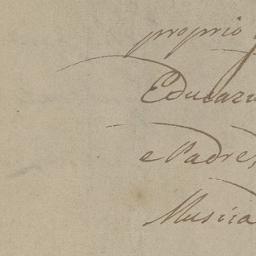 proprio
Educazi
e Padre,
Musica